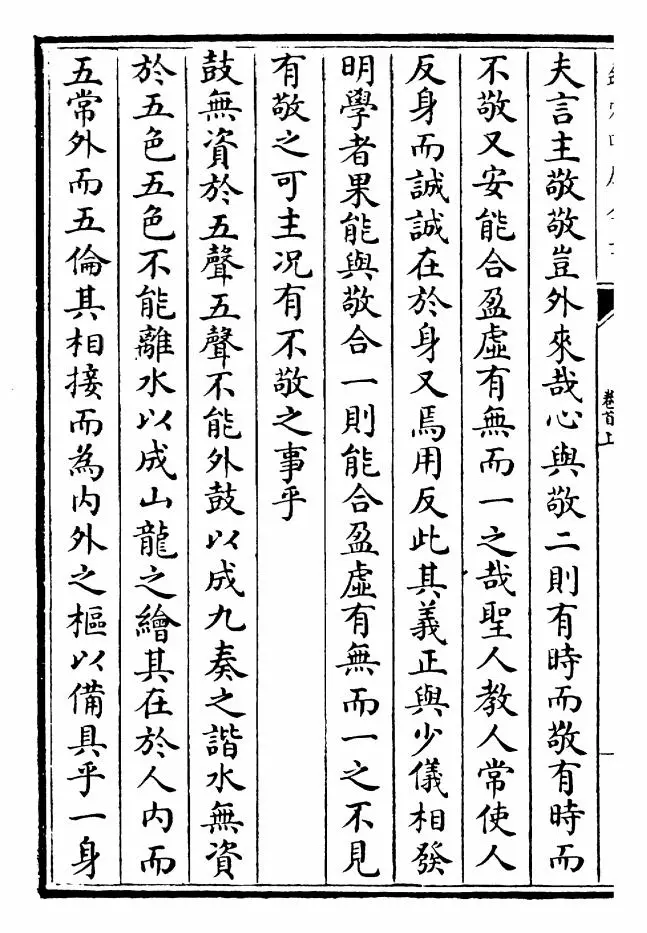 夫言主敬敬豈外來哉心與敬二則有時而敬有時而
不敬又安能合盈虛有無而一之哉聖人教人常使人
反身而誠誠在於身又焉用反此其義正與少儀相發
明學者果能與敬合一則能合盈虛有無而一之不見
有敬之可主況有不敬之事乎
鼓無資於五聲五聲不能外鼓以成九奏之諧水無資
於五色五色不能離水以成山龍之繪其在於人內而
五常外而五倫其相接而為內外之樞以備具乎一身
卷首上